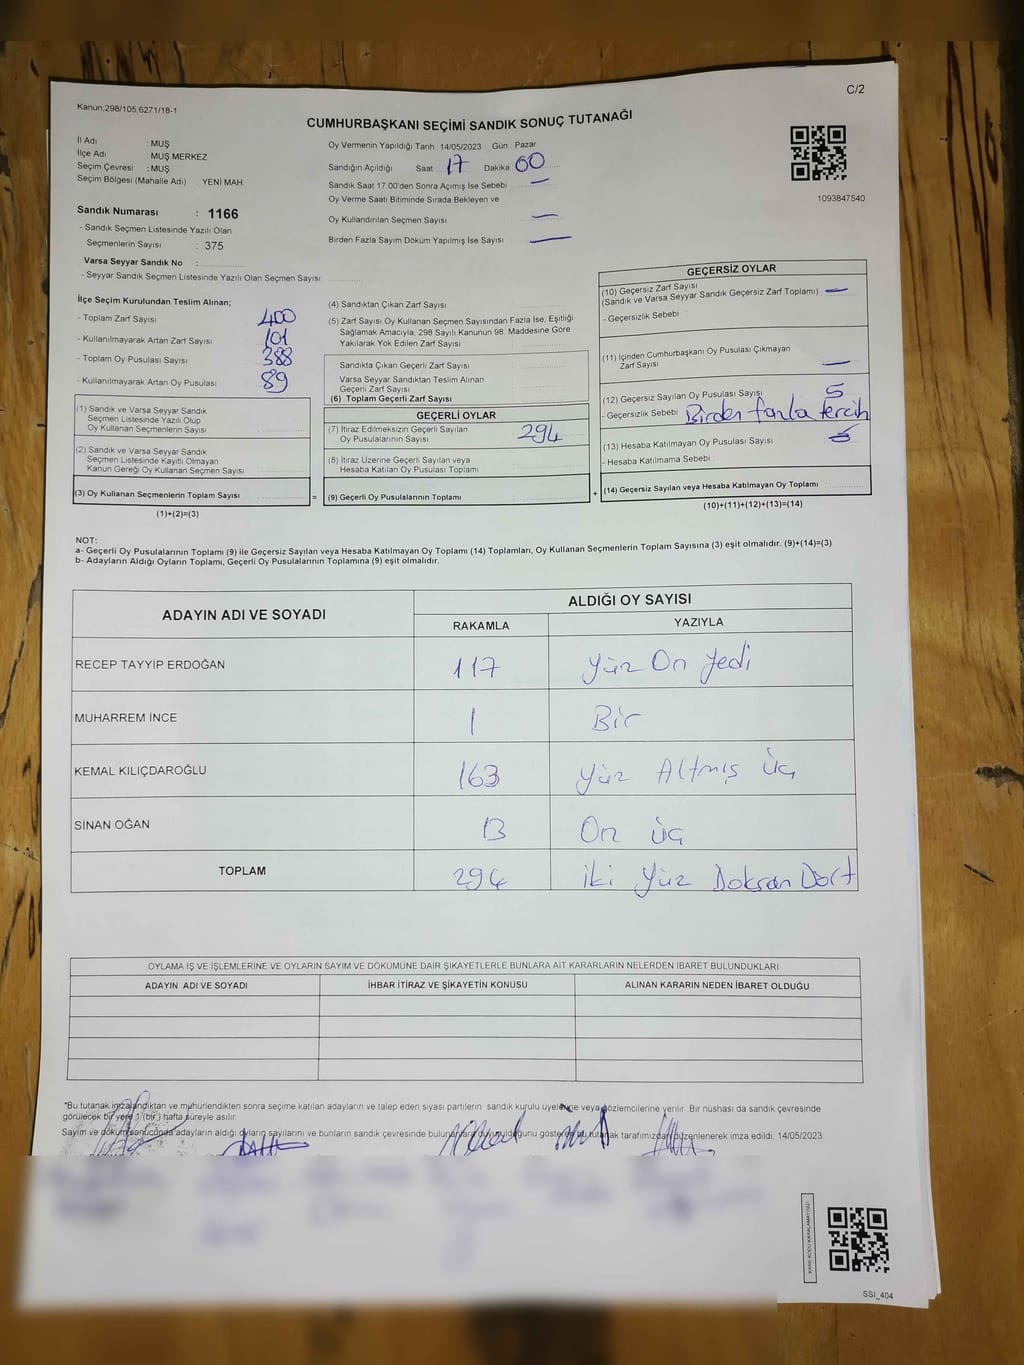 C/2
Kanun;298/105,6271/18-1
CUMHURBAŞKANI SEÇİMİ SANDIK SONUÇ TUTANAĞI
İl Adı : MUŞ
İlçe Adı : MUŞ MERKEZ
Seçim Çevresi : MUŞ
Seçim Bölgesi (Mahalle Adı) : YENİ MAH.
Oy Vermenin Yapıldığı Tarih :14/05/2023 Gün : Pazar
Sandığın Açıldığı Saat : 17 Dakika 60
Sandık Saat 17:00'den Sonra Açımış İse Sebebi : —
Oy Verme Saati Bitiminde Sırada Bekleyen ve
Oy Kullandırılan Seçmen Sayısı : —
Birden Fazla Sayım Döküm Yapılmış İse Sayısı : —
1093847540
Sandık Numarası : 1166
- Sandık Seçmen Listesinde Yazılı Olan
Seçmenlerin Sayısı : 375
Varsa Seyyar Sandık No :
- Seyyar Sandık Seçmen Listesinde Yazılı Olan Seçmen Sayısı:
İlçe Seçim Kurulundan Teslim Alınan;
- Toplam Zarf Sayısı : 400
- Kullanılmayarak Artan Zarf Sayısı : 101
- Toplam Oy Pusulası Sayısı : 388
- Kullanılmayarak Artan Oy Pusulası : 89
(1) Sandık ve Varsa Seyyar Sandık
Seçmen Listesinde Yazılı Olup
Oy Kullanan Seçmenlerin Sayısı :
(2) Sandık ve Varsa Seyyar Sandık
Seçmen Listesinde Kayıtlı Olmayan
Kanun Gereği Oy Kullanan Seçmen Sayısı :
(3) Oy Kullanan Seçmenlerin Toplam Sayısı :
(1)+(2)=(3)
(4) Sandıktan Çıkan Zarf Sayısı :
(5) Zarf Sayısı Oy Kullanan Seçmen Sayısından Fazla İse, Eşitliği
Sağlamak Amacıyla, 298 Sayılı Kanunun 98. Maddesine Göre
Yakılarak Yok Edilen Zarf Sayısı :
Sandıkta Çıkan Geçerli Zarf Sayısı :
Varsa Seyyar Sandıktan Teslim Alınan
Geçerli Zarf Sayısı :
(6) Toplam Geçerli Zarf Sayısı :
GEÇERLİ OYLAR
(7) İtiraz Edilmeksizin Geçerli Sayılan
Oy Pusulalarının Sayısı : 294
(8) İtiraz Üzerine Geçerli Sayılan veya
Hesaba Katılan Oy Pusulası Toplamı :
= (9) Geçerli Oy Pusulalarının Toplamı :
GEÇERSİZ OYLAR
(10) Geçersiz Zarf Sayısı
(Sandık ve Varsa Seyyar Sandık Geçersiz Zarf Toplamı) : —
- Geçersizlik Sebebi :
(11) İçinden Cumhurbaşkanı Oy Pusulası Çıkmayan
Zarf Sayısı : —
(12) Geçersiz Sayılan Oy Pusulası Sayısı : 5
- Geçersizlik Sebebi : Birden fazla tercih
(13) Hesaba Katılmayan Oy Pusulası Sayısı :
- Hesaba Katılmama Sebebi :
+ (14) Geçersiz Sayılan veya Hesaba Katılmayan Oy Toplamı :
(10)+(11)+(12)+(13)=(14)
NOT:
a- Geçerli Oy Pusulalarının Toplamı (9) ile Geçersiz Sayılan veya Hesaba Katılmayan Oy Toplamı (14) Toplamları, Oy Kullanan Seçmenlerin Toplam Sayısına (3) eşit olmalıdır. (9)+(14)=(3)
b- Adayların Aldığı Oyların Toplamı, Geçerli Oy Pusulalarının Toplamına (9) eşit olmalıdır.
ADAYIN ADI VE SOYADI ALDIĞI OY SAYISI
RAKAMLA YAZIYLA
RECEP TAYYİP ERDOĞAN 117 Yüz On Yedi
MUHARREM İNCE 1 Bir
KEMAL KILIÇDAROĞLU 163 Yüz Altmış Üç
SİNAN OĞAN 13 On üç
TOPLAM 294 İki Yüz Doksan Dört
OYLAMA İŞ VE İŞLEMLERİNE VE OYLARIN SAYIM VE DÖKÜMÜNE DAİR ŞİKAYETLERLE BUNLARA AİT KARARLARIN NELERDEN İBARET BULUNDUKLARI
ADAYIN ADI VE SOYADI İHBAR İTİRAZ VE ŞİKAYETİN KONUSU ALINAN KARARIN NEDEN İBARET OLDUĞU
*Bu tutanak imzalandıktan ve mühürlendikten sonra seçime katılan adayların ve talep eden siyasi partilerin sandık kurulu üyelerine veya gözlemcilerine verilir. Bir nüshası da sandık çevresinde
görülecek bir yere 1 (bir) hafta süreyle asılır.
Sayım ve döküm sonucunda adayların aldığı oyların sayılarını ve bunların sandık çevresinde bulunanlara duyurulduğunu gösteren bu tutanak tarafımızdan düzenlenerek imza edildi. 14/05/2023
KARE KODU KARALAMAYINIZ!
SSI_404